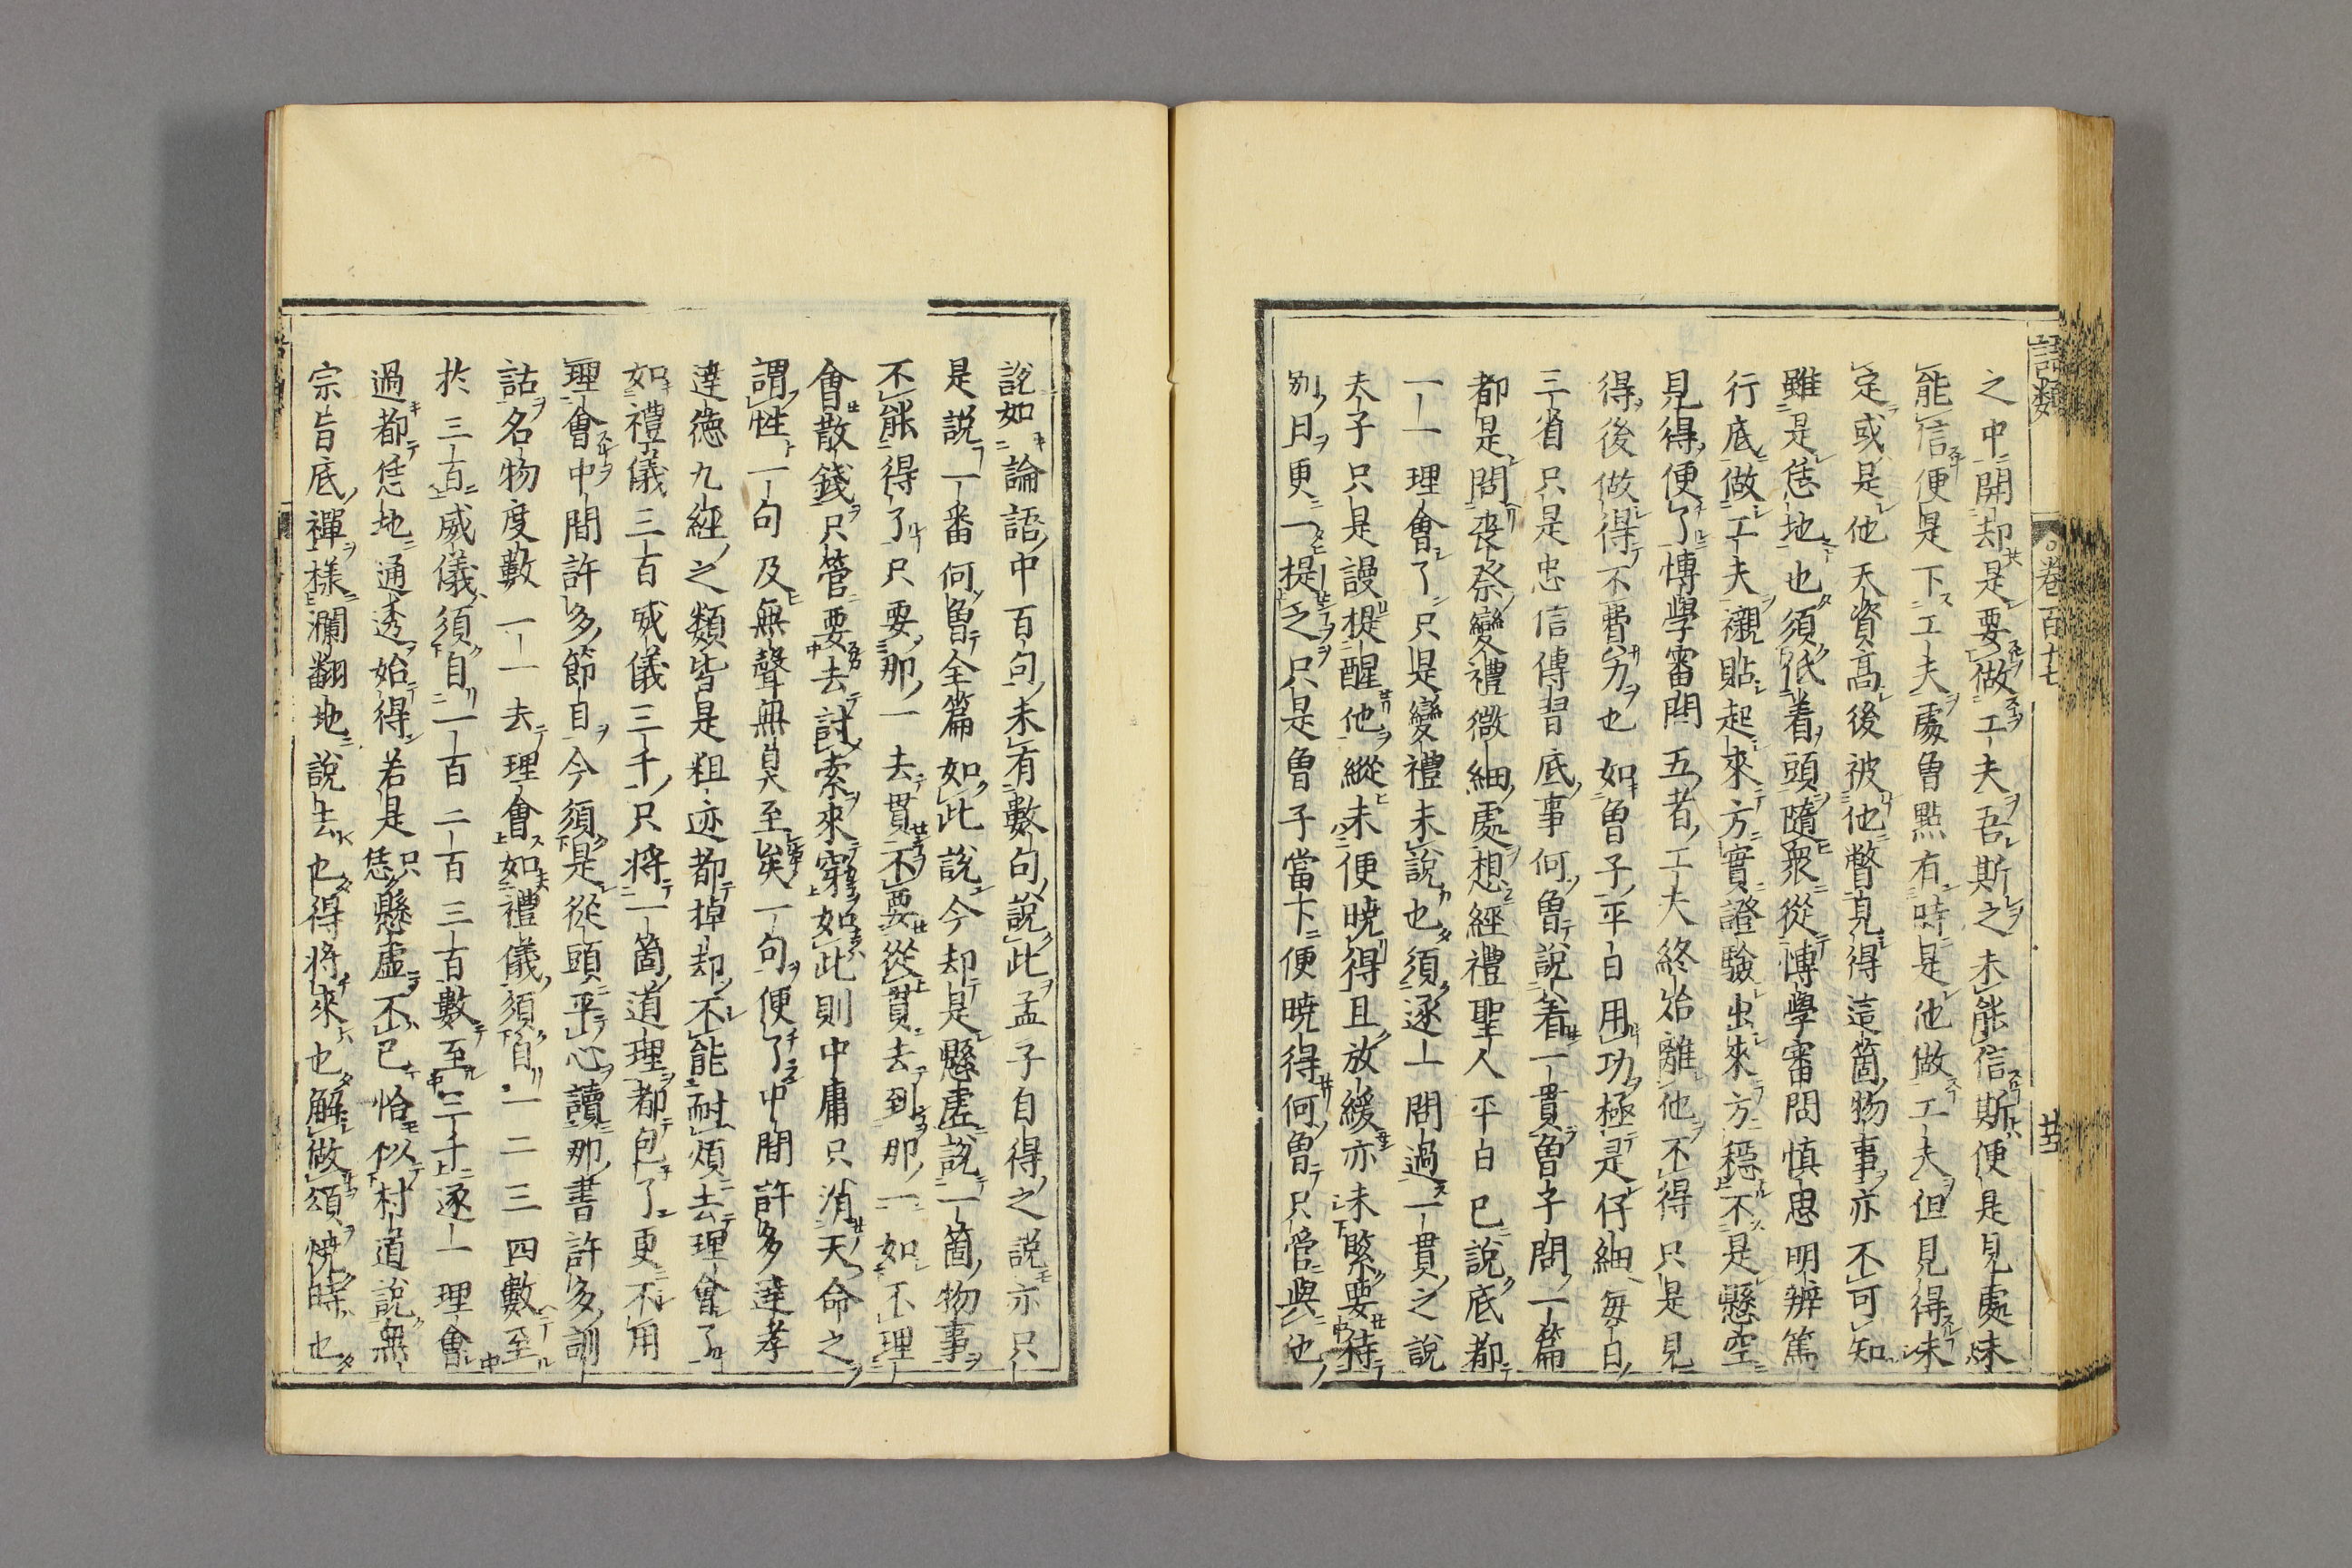 語類
卷百十七
之中開却是要做工夫吾斯之未能信斯便是見處未
能信便是下工夫處曾點有時是他做工夫但見得未
定或是他天資高後被他瞥見得這箇物事亦不可知
雖是恁地也須低着頭隨衆從博學審問慎思明辨篤
行底做工夫襯貼起來方實證驗出來方穩不是懸空
見得便了博學審問五者工夫終始離他不得只是見
得後做得不費力也如曾子平日用功極是仔細每日
三省只是忠信傳習底事何曾說着一貫曾子問一篇
都是問喪祭變禮微細處想經禮聖人平日已說底都
一一理會了只是變禮未說也須逐一問過一貫之說
夫子只是謾提醒他縱未便曉得且放緩亦未緊要待
別日更一提之只是曾子當下便曉得何曾只管與他
說如論語中百句未有數句說此孟子自得之說亦只
是說一番何曾全篇如此說今却是懸虛說一箇物事
不能得了只要那一去貫不要從貫去到那一如不理
會散錢只管要去討索來穿如此則中庸只消天命之
謂性一句及無聲無臭至矣一句便了中間許多達孝
達德九經之類皆是粗迹都掉却不能耐煩去理會了
如禮儀三百威儀三千只將一箇道理都包了更不用
理會中間許多節目今須是從頭平心讀那書許多訓
詁名物度數一一去理會如禮儀須自一二三四數至
於三百威儀須自一百二百三百數至三千逐一理會
過都恁地通透始得若是只恁懸虛不已恰似村道說無
宗旨底禪樣瀾翻地說去也得將來也解做頌燒時也